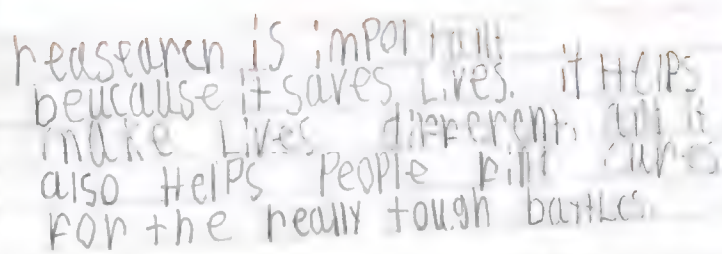 reasearch is important
beucause it saves Lives. it HelPs
make Lives different. and it
also HelPs PeoPle Find cures
For the really tough battles.